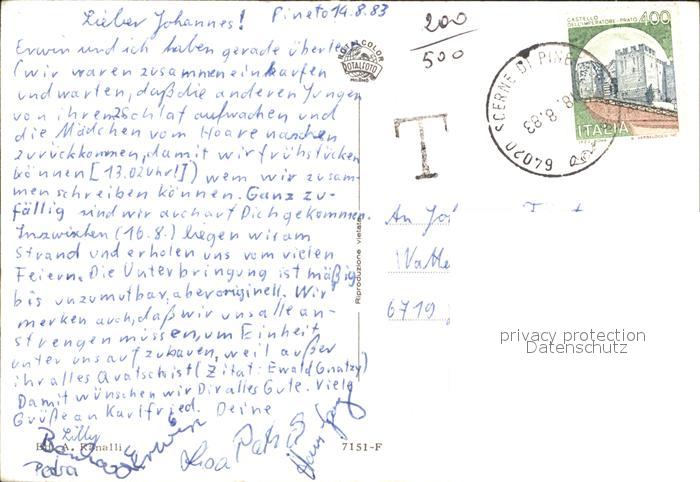 Lieber Johannes! Pineto 14.8.83
Erwin und ich haben gerade überle
(wir waren zusammen einkaufen
und warten, daß die anderen Jungen
von ihrem Schlaf aufwachen und
die Mädchen vom Haare waschen
zurückkommen, damit wir frühstücken
können [13.02 Uhr!]) wem wir zusam-
men schreiben können. Ganz zu-
fällig sind wir auch auf Dich gekommen.
Inzwischen (16.8.) liegen wir am
Strand und erholen uns vom vielen
Feiern. Die Unterbringung ist mäßig
bis unzumutbar, aber originell. Wir
merken auch, daß wir uns alle an-
strengen müssen, um Einheit
unter uns aufzubauen, weil außer
ihr alles Quatsch ist (Zitat: Ewald Gnatzy)
Damit wünschen wir Dir alles Gute. Viele
Grüße an Karlfried. Deine
Lilly
Petra
Erwin
Lisa
Petra
Ranalli
7151-F
ROTALCOLOR
ROTALFOTO
MILANO
Riproduzione vietata
200
500
T
CASTELLO
DELL'IMPERATORE - PRATO
400
ITALIA
SCERNE DI PINE
18.8.83
64020
An
6719
privacy protection
Datenschutz